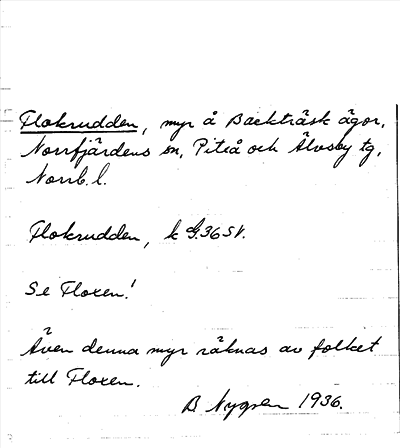 Flokrudden, myr å Backträsk ägor,
Norrfjärdens sn, Piteå och Älvsby tg,
Norrb. l.
Flokrudden, k G. 36 SV.
Se Floxen!
Även denna myr räknas av folket
till Floxen.
B Nygren 1936.